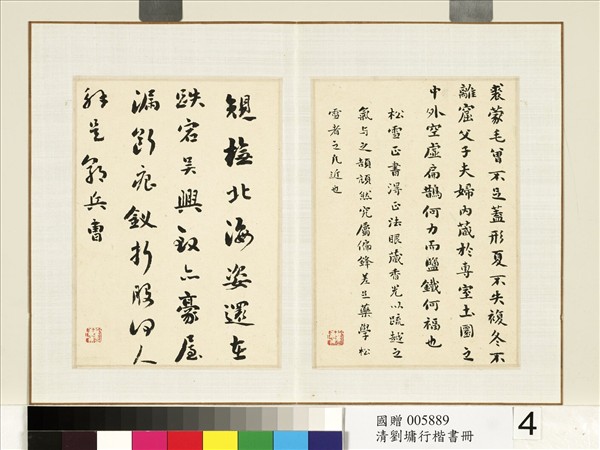 裘蒙毛曾不足蓋形夏不失複冬不
離窟父子夫婦內藏於專室土圜之
中外空虛扁鵲何力而鹽鐵何福也
松雪正書得正法眼藏香光以疏越之
氣与之頡頏然究屬偏鋒差足藥學松
雪者之凡近也
規橅北海姿還在
跌宕吳興致亦豪屋
漏痕釵折股何人
解是鄔兵曹
國贈 005889
清劉墉行楷書冊
4